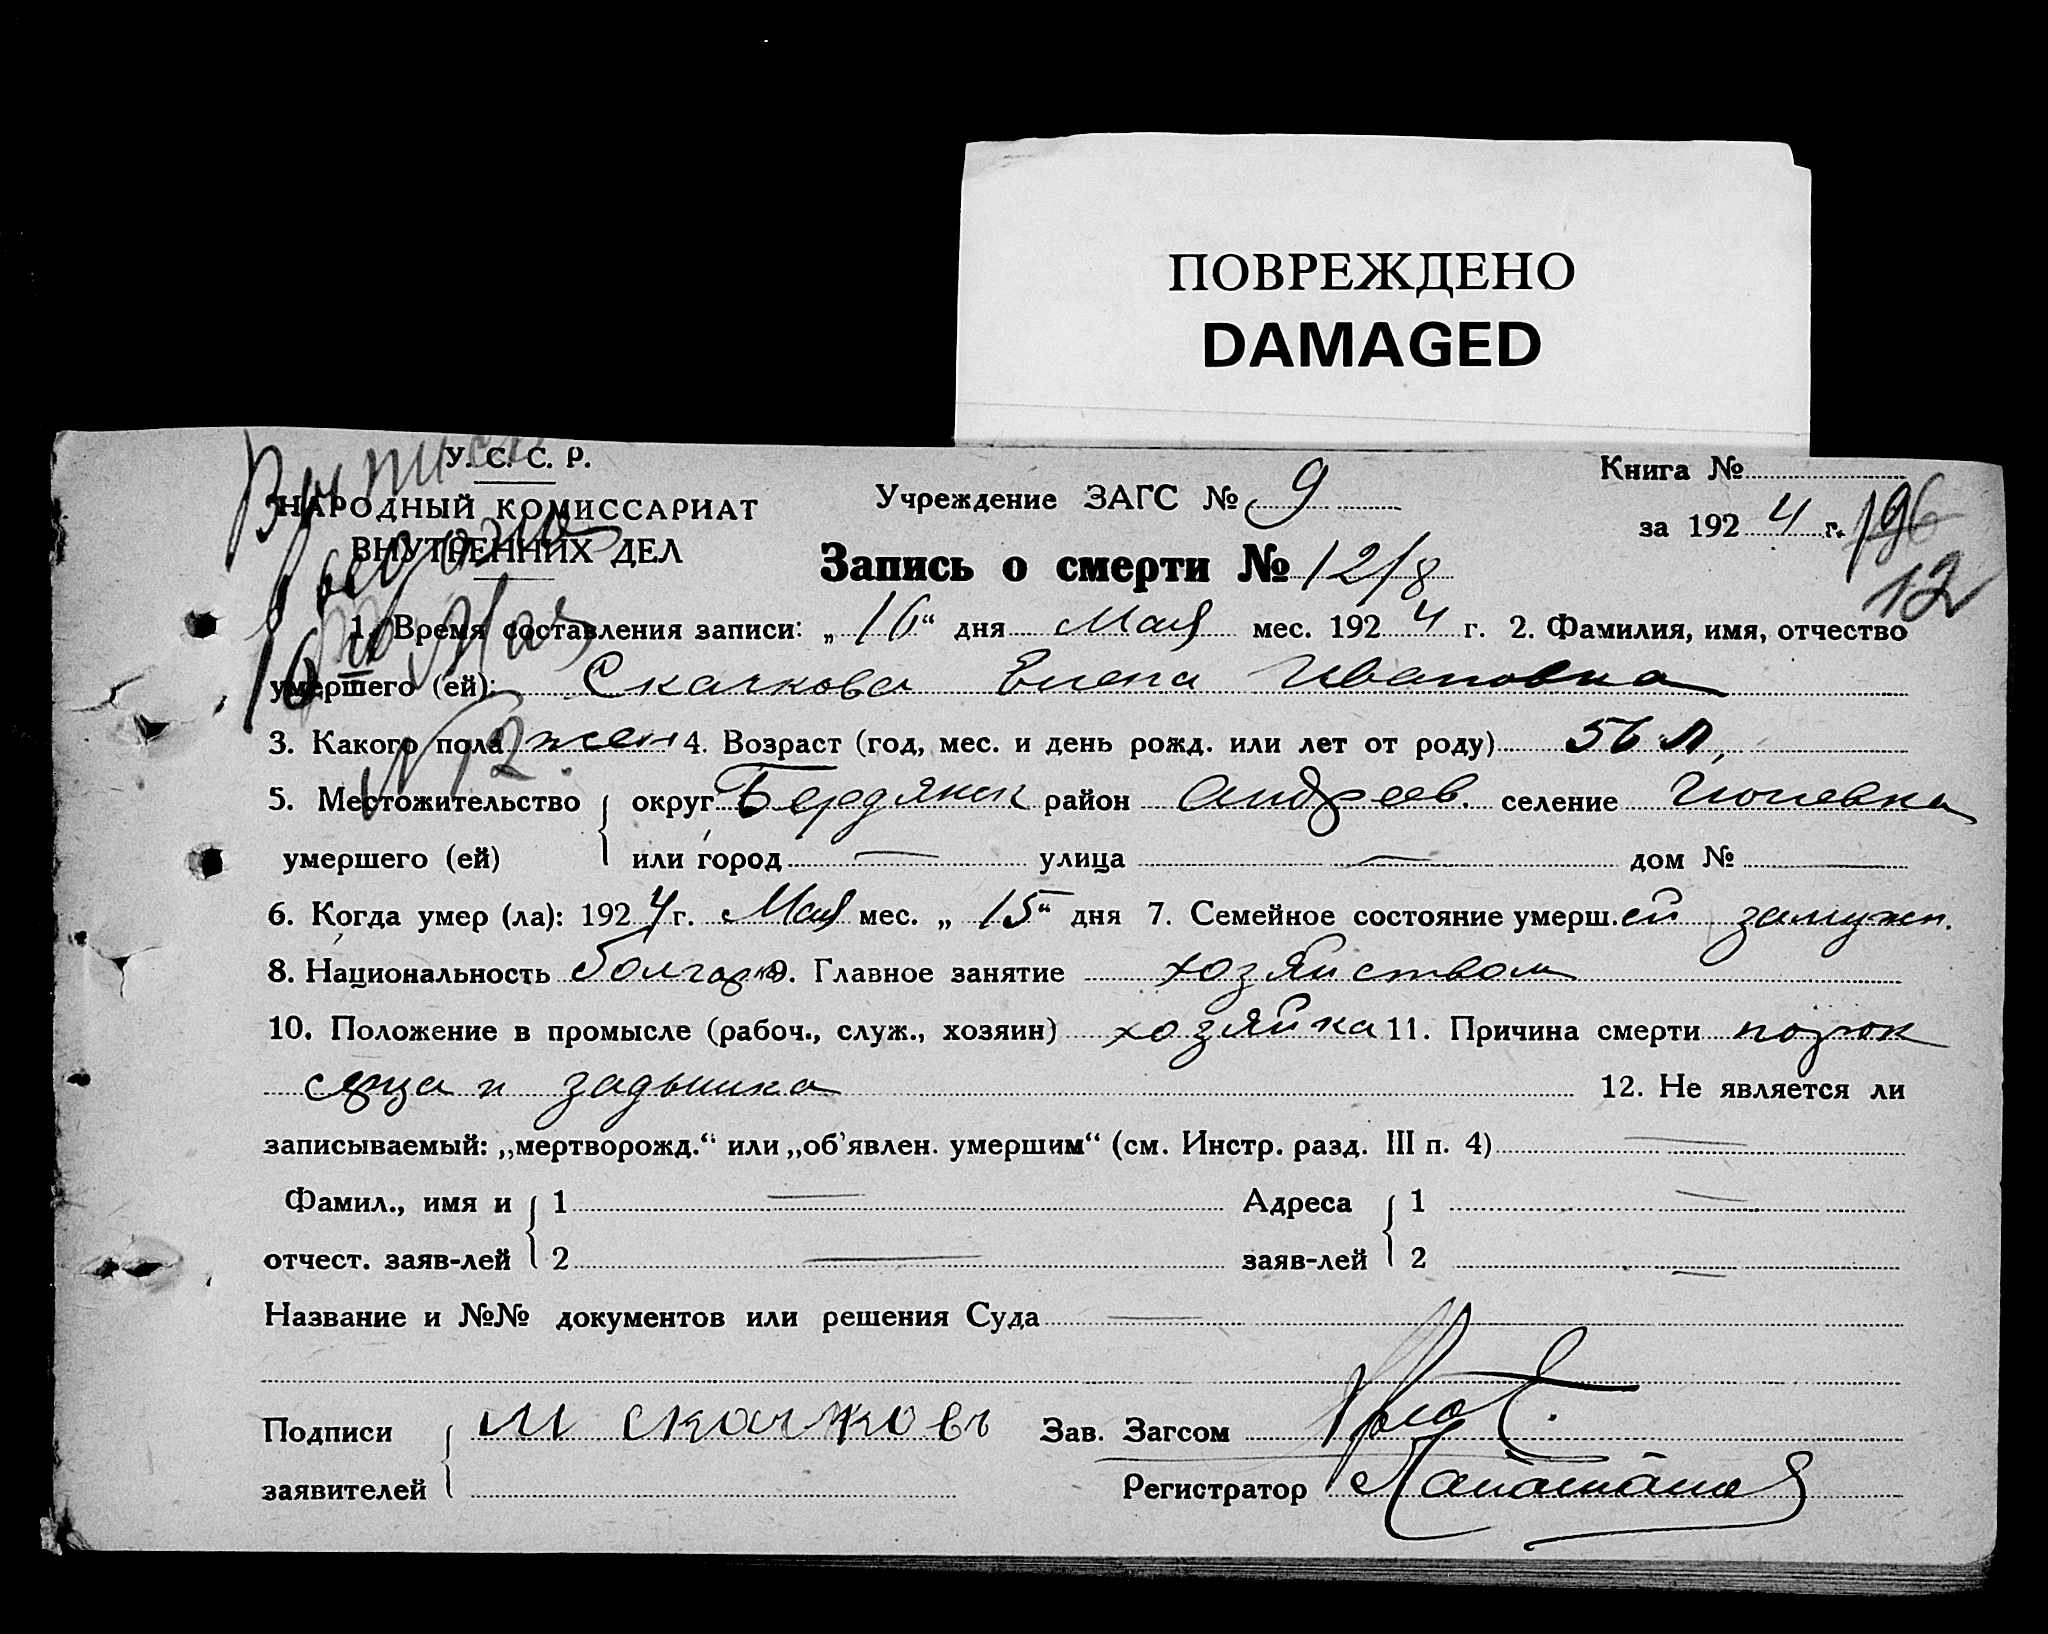 ПОВРЕЖДЕНО
DAMAGED
У. С. С. Р.
НАРОДНЫЙ КОМИССАРИАТ
ВНУТРЕННИХ ДЕЛ
Учреждение ЗАГС № 9
Книга №
за 1924 г.
196
12
Запись о смерти № 12/8
1. Время составления записи: „16“ дня Мая мес. 1924 г. 2. Фамилия, имя, отчество
умершего (ей): Скачкова Елена Ивановна
3. Какого пола жен 4. Возраст (год, мес. и день рожд. или лет от роду) 56 л.
5. Местожительство округ Бердянск район Андреев. селение
умершего (ей) или город — улица — дом № —
6. Когда умер (ла): 1924 г. Мая мес. „15“ дня 7. Семейное состояние умерш.ей замужн.
8. Национальность болгарка 9. Главное занятие хозяйством
10. Положение в промысле (рабоч., служ., хозяин) хозяйка 11. Причина смерти
и задышка 12. Не является ли
записываемый: „мертворожд.“ или „об'явлен. умершим“ (см. Инстр. разд. III п. 4) —
Фамил., имя и 1 — Адреса 1 —
отчест. заяв-лей 2 — заяв-лей 2 —
Название и №№ документов или решения Суда —
Подписи М Скачковъ Зав. Загсом
заявителей Регистратор